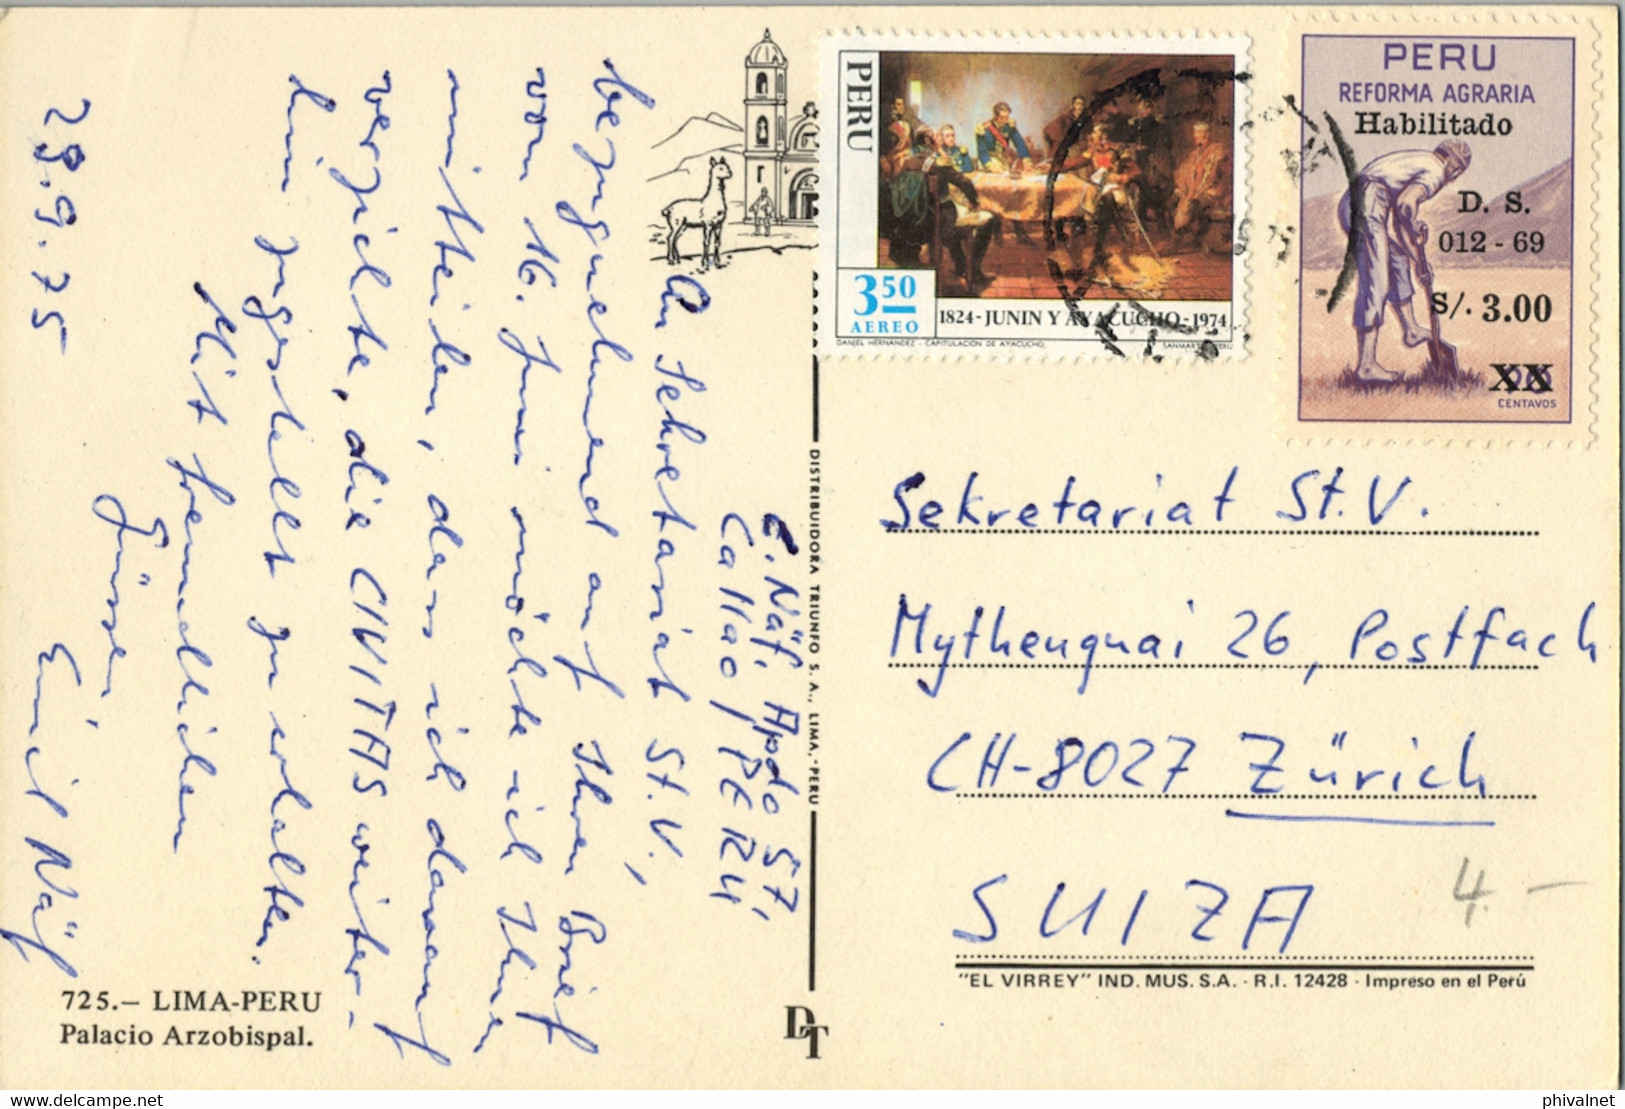 PERU
3 50
AEREO
1824-JUNIN Y AYACUCHO-1974
DANIEL HERNANDEZ - CAPITULACION DE AYACUCHO.
PERU
REFORMA AGRARIA
Habilitado
D. S.
012 - 69
S/. 3.00
XX
CENTAVOS
E. Näf, Apdo 57,
Callao / PERU
An Sekretariat St.V.,
bezugnehmend auf Ihren Brief
vom 16. Juni möchte ich Ihnen
mitteilen, dass ich darauf
verzichte, die CIVITAS weiter-
hin zugestellt zu erhalten.
Mit freundlichen
Grüssen
Emil Näf
29.9.75
Sekretariat St.V.
Mythenquai 26, Postfach
CH-8027 Zürich
SUIZA
4.-
"EL VIRREY" IND. MUS. S.A. - R.I. 12428 - Impreso en el Perú
DISTRIBUIDORA TRIUNFO S. A., LIMA,-PERU
DT
725.— LIMA-PERU
Palacio Arzobispal.
delcampe.net
phivalnet